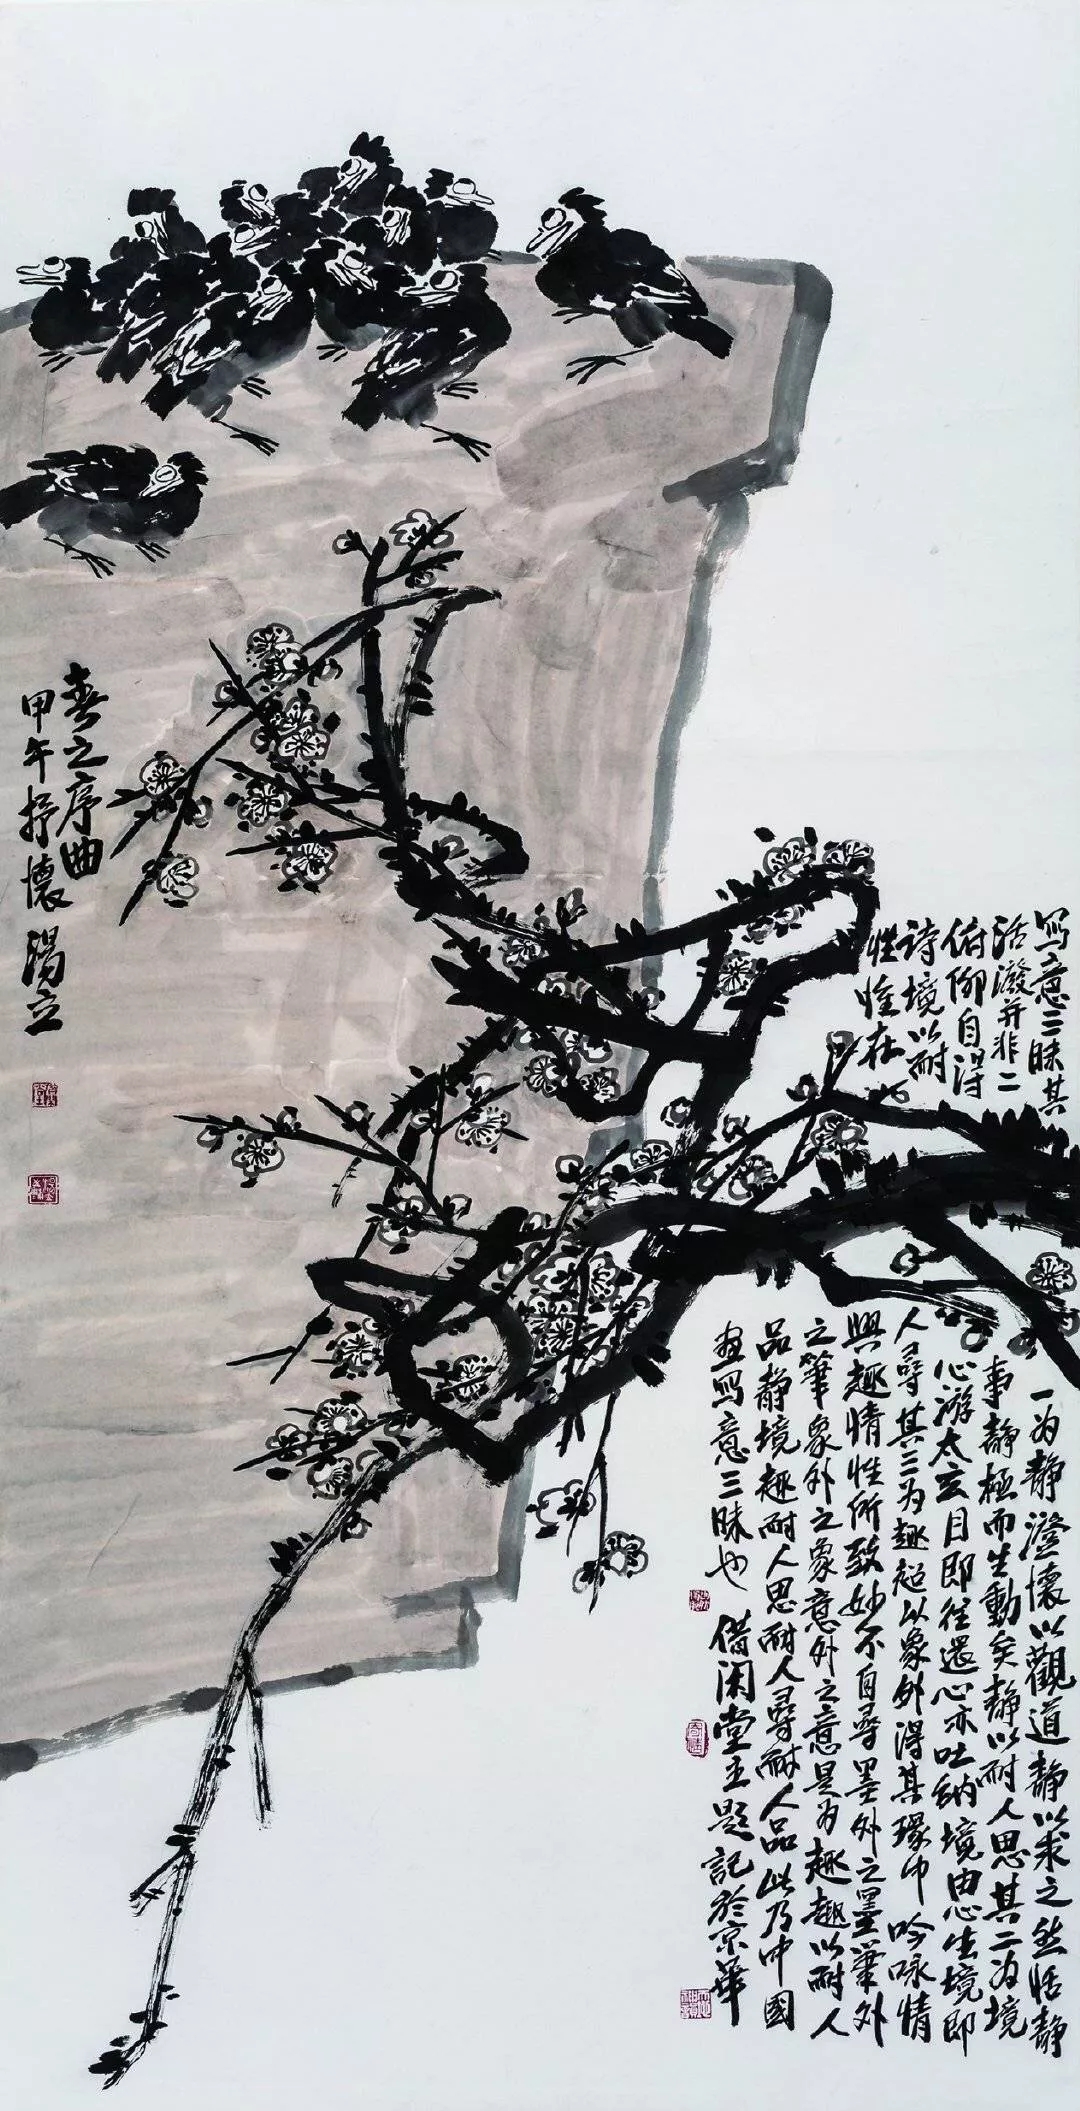 写意三昧其
一为静澄懷以觀道静以求之然恬静
活潑并非二
事静極而生動矣静以耐人思其二为境
俯仰自得
心游太玄目即往還心亦吐纳境由心生境即
诗境以耐
人尋其三为趣超以象外得其環中吟咏情
性惟在
興趣情性所致妙不自尋墨外之墨筆外
之筆象外之象意外之意是为趣趣以耐人
品静境趣耐人思耐人尋耐人品此乃中國
画写意三昧也 借闲堂主题記於京華
春之序曲
甲午抒懷 湯立